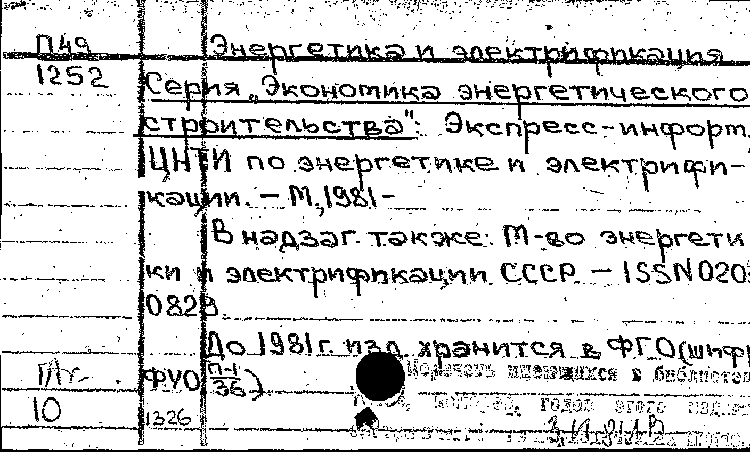 П49 Энергетика и электрификация
1252 Серия „Экономика энергетического
строительства": Экспресс-информ.
ЦНТИ по энергетике и электрифи-
кации. - М., 1981-
В надзаг. также: М-во энергети
ки и электрификации СССР. - ISSN 020
0829.
До 1981 г. изд. хранится в ФГО (шифр
ФУО П-1 36)
Перечень имеющихся в библиотек
10 1326 годов этого